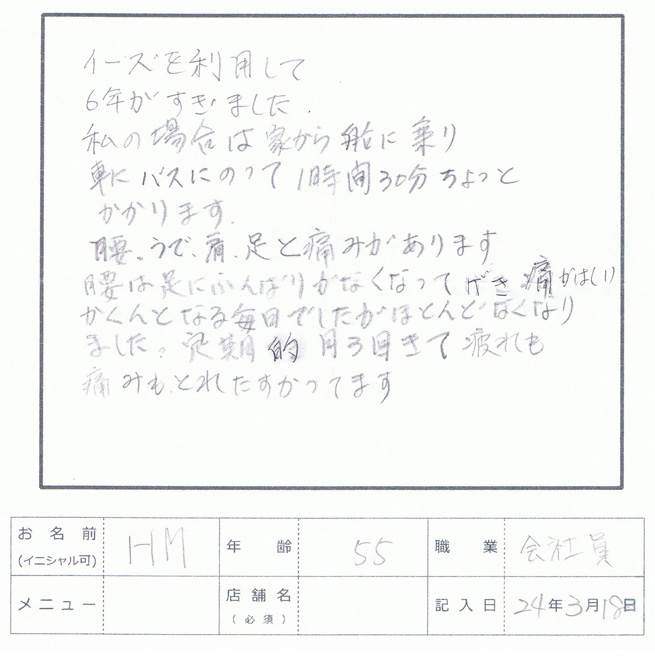 イーズを利用して
6年がすぎました.
私の場合は家から船に乗り
車にバスにのって1時間30分ちょっと
かかります.
腰、うで、肩、足と痛みがあります
腰は足にふんばりがなくなってげき痛がはしり
かくんとなる毎日でしたがほとんどなくなり
ました。定期的月3回きて疲れも
痛みもとれたすかってます
お名前 HM 年齢 55 職業 会社員
(イニシャル可)
メニュー 店舗名 記入日 24年3月18日
(必須)